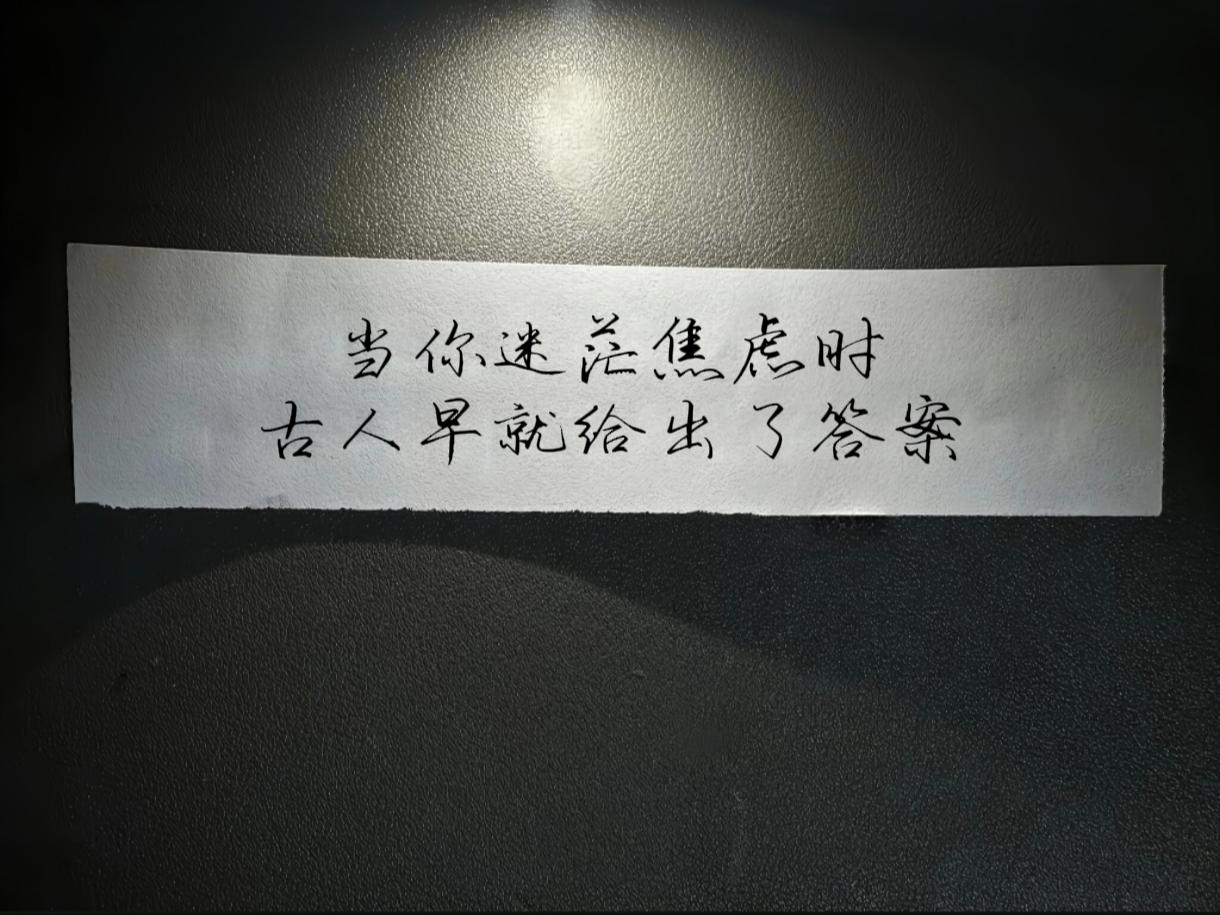 当你迷茫焦虑时
古人早就给出了答案